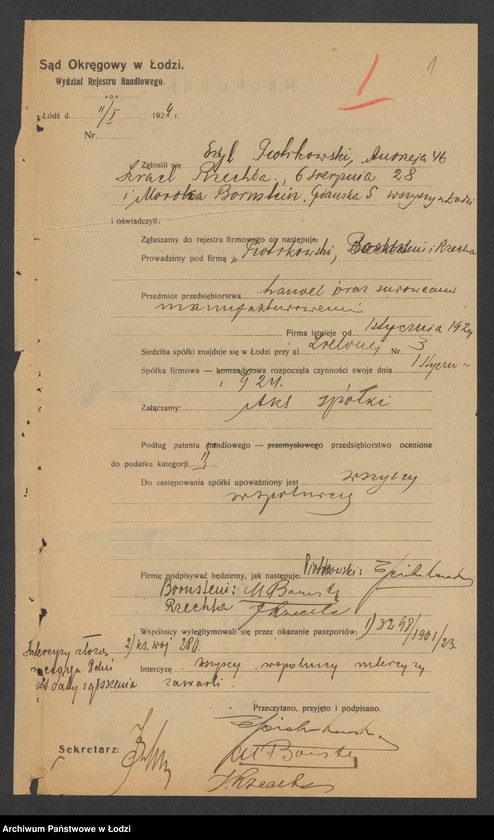 1
1
Sąd Okręgowy w Łodzi.
Wydział Rejestru Handlowego.
Łódź d. 11/I 1924 r.
Nr.
Zgłosili się Piotrkowski, Andrzeja 46
6 Sierpnia 28
i Bornstein, Gdańska 5 wszyscy w Łodzi
i oświadczyli:
Zgłaszamy do rejestru firmowego co następuje:
Prowadzimy pod firmą „Piotrkowski, Bornstein i Rzechta
Przedmiot przedsiębiorstwa handel oraz surowcami
manufakturowemi
Firma istnieje od 1 Stycznia 1924
Siedziba spółki znajduje się w Łodzi przy ul. Nr. 3
Spółka firmowa — komandytowa rozpoczęła czynności swoje dnia 1 Stycz-
1924.
Załączamy: Akt spółki
Podług patentu handlowego — przemysłowego przedsiębiorstwo ocenione
do podatku kategorji II
Do zastępowania spółki upoważniony jest wszyscy
wspólnicy
Firmę podpisywać będziemy, jak następuje: Piotrkowski:
Bornstein: M Bornstein
Rzechta
Wspólnicy wylegitymowali się przez okazanie paszportów: 1) 3298/1901/23.
2) ks. woj 280.
Intercyzę wszyscy wspólnicy intercyzy
zawarli.
Intercyzy złożą
w ciągu dni
od daty zgłoszenia
Przeczytano, przyjęto i podpisano.
Sekretarz:
M Bornstein
Archiwum Państwowe w Łodzi